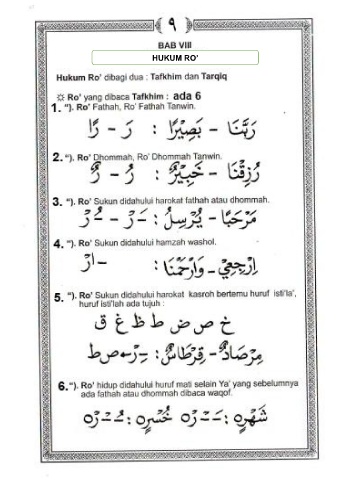 ٩
BAB VIII
HUKUM RO'
Hukum Ro' dibagi dua : Tafkhim dan Tarqiq
☼ Ro' yang dibaca Tafkhim : ada 6
1. "). Ro' Fathah, Ro' Fathah Tanwin.
رَبَّنَا - بَصِيْرًا : رَ - رًا
2. "). Ro' Dhommah, Ro' Dhommah Tanwin.
رُزِقْنَا - خَبِيْرٌ : رُ - رٌ
3. "). Ro' Sukun didahului harokat fathah atau dhommah.
مَرْحَبًا - يُرْسِلُ : ـَـرْ - ـُـرْ
4. "). Ro' Sukun didahului hamzah washol.
اِرْجِعِيْ - وَارْحَمْنَا : ـ ارْ
5. "). Ro' Sukun didahului harokat kasroh bertemu huruf isti'la',
huruf isti'lah ada tujuh :
خ ص ض ط ظ غ ق
مِرْصَادٌ - قِرْطَاسٌ : ـِـرْ - ص ط
6. "). Ro' hidup didahului huruf mati selain Ya' yang sebelumnya
ada fathah atau dhommah dibaca waqof.